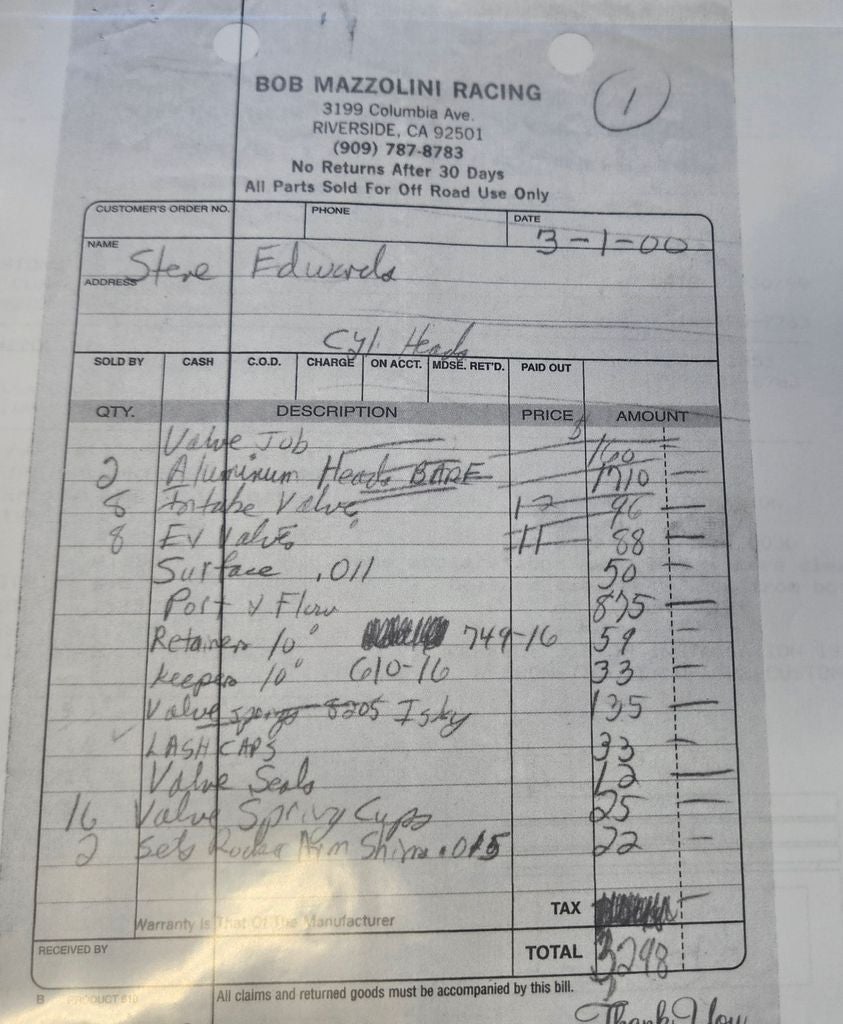 BOB MAZZOLINI RACING
1
3199 Columbia Ave.
RIVERSIDE, CA 92501
(909) 787-8783
No Returns After 30 Days
All Parts Sold For Off Road Use Only
CUSTOMER'S ORDER NO. PHONE DATE 3-1-00
NAME Steve Edwards
ADDRESS
Cyl. Heads
SOLD BY CASH C.O.D. CHARGE ON ACCT. MDSE. RET'D. PAID OUT
QTY. DESCRIPTION PRICE AMOUNT
Valve Job 160
2 Aluminum Heads BARE 1710 —
8 Intake Valve 12 96 —
8 Ex Valves 11 88 —
Surface .011 50 —
Port & Flow 875 —
Retainers 10° 749-16 59 —
Keepers 10° 610-16 33 —
Valve springs 8205 Isky 135 —
LASH CAPS 33 —
Valve Seals 12 —
16 Valve Spring Cups 25 —
2 Sets Rocker Arm Shims .015 22 —
TAX
Warranty Is That Of The Manufacturer
RECEIVED BY TOTAL 3298
B PRODUCT 610 All claims and returned goods must be accompanied by this bill.
Thank You